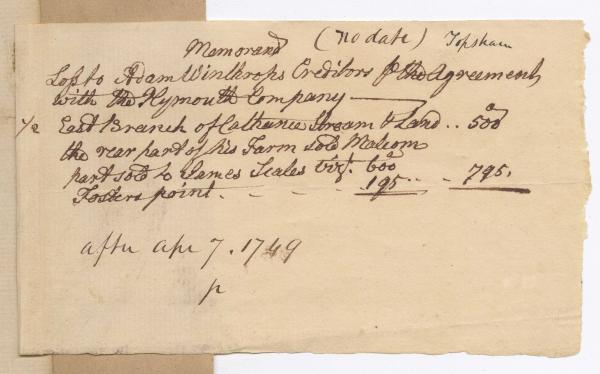 Memorand (no date) Topsham
Loss to Adam Winthrops Creditors ⅌ the Agreement
with the Plymouth Company
1/2 East Branch of Cathance Stream & Land .. 500a
the rear part of his Farm sold Malcom
part sold to James Scales vizt. 600a
Fosters point - - - 195 - - 795.
after apr 7. 1749
p